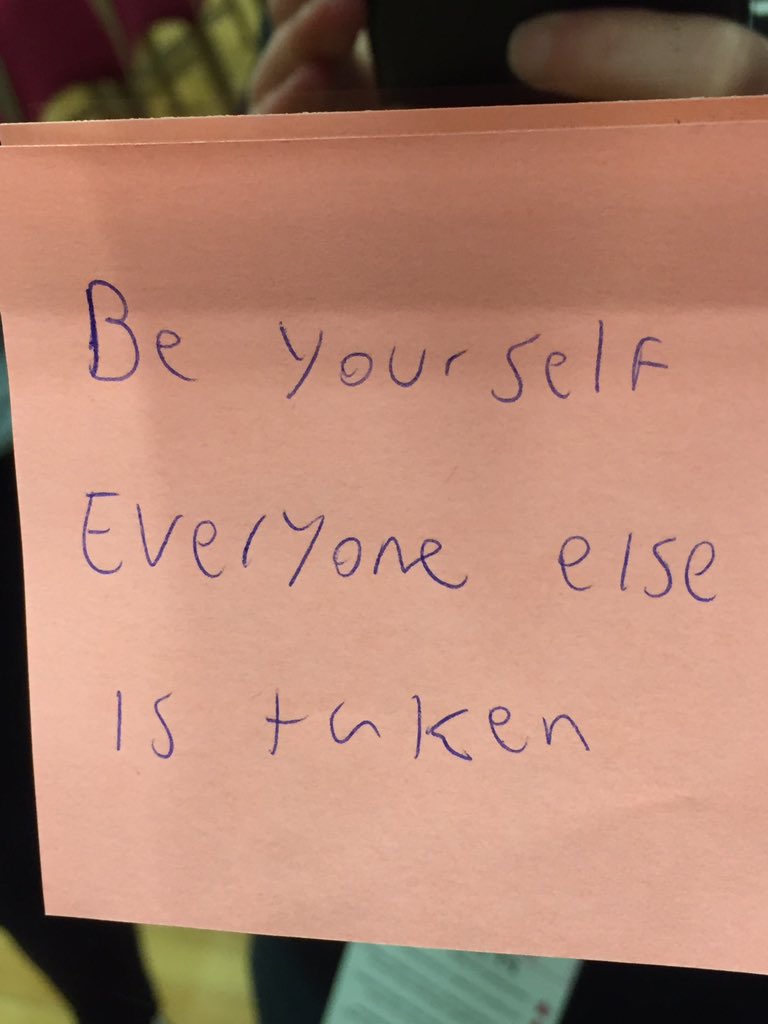 Be yourself
Everyone else
is taken